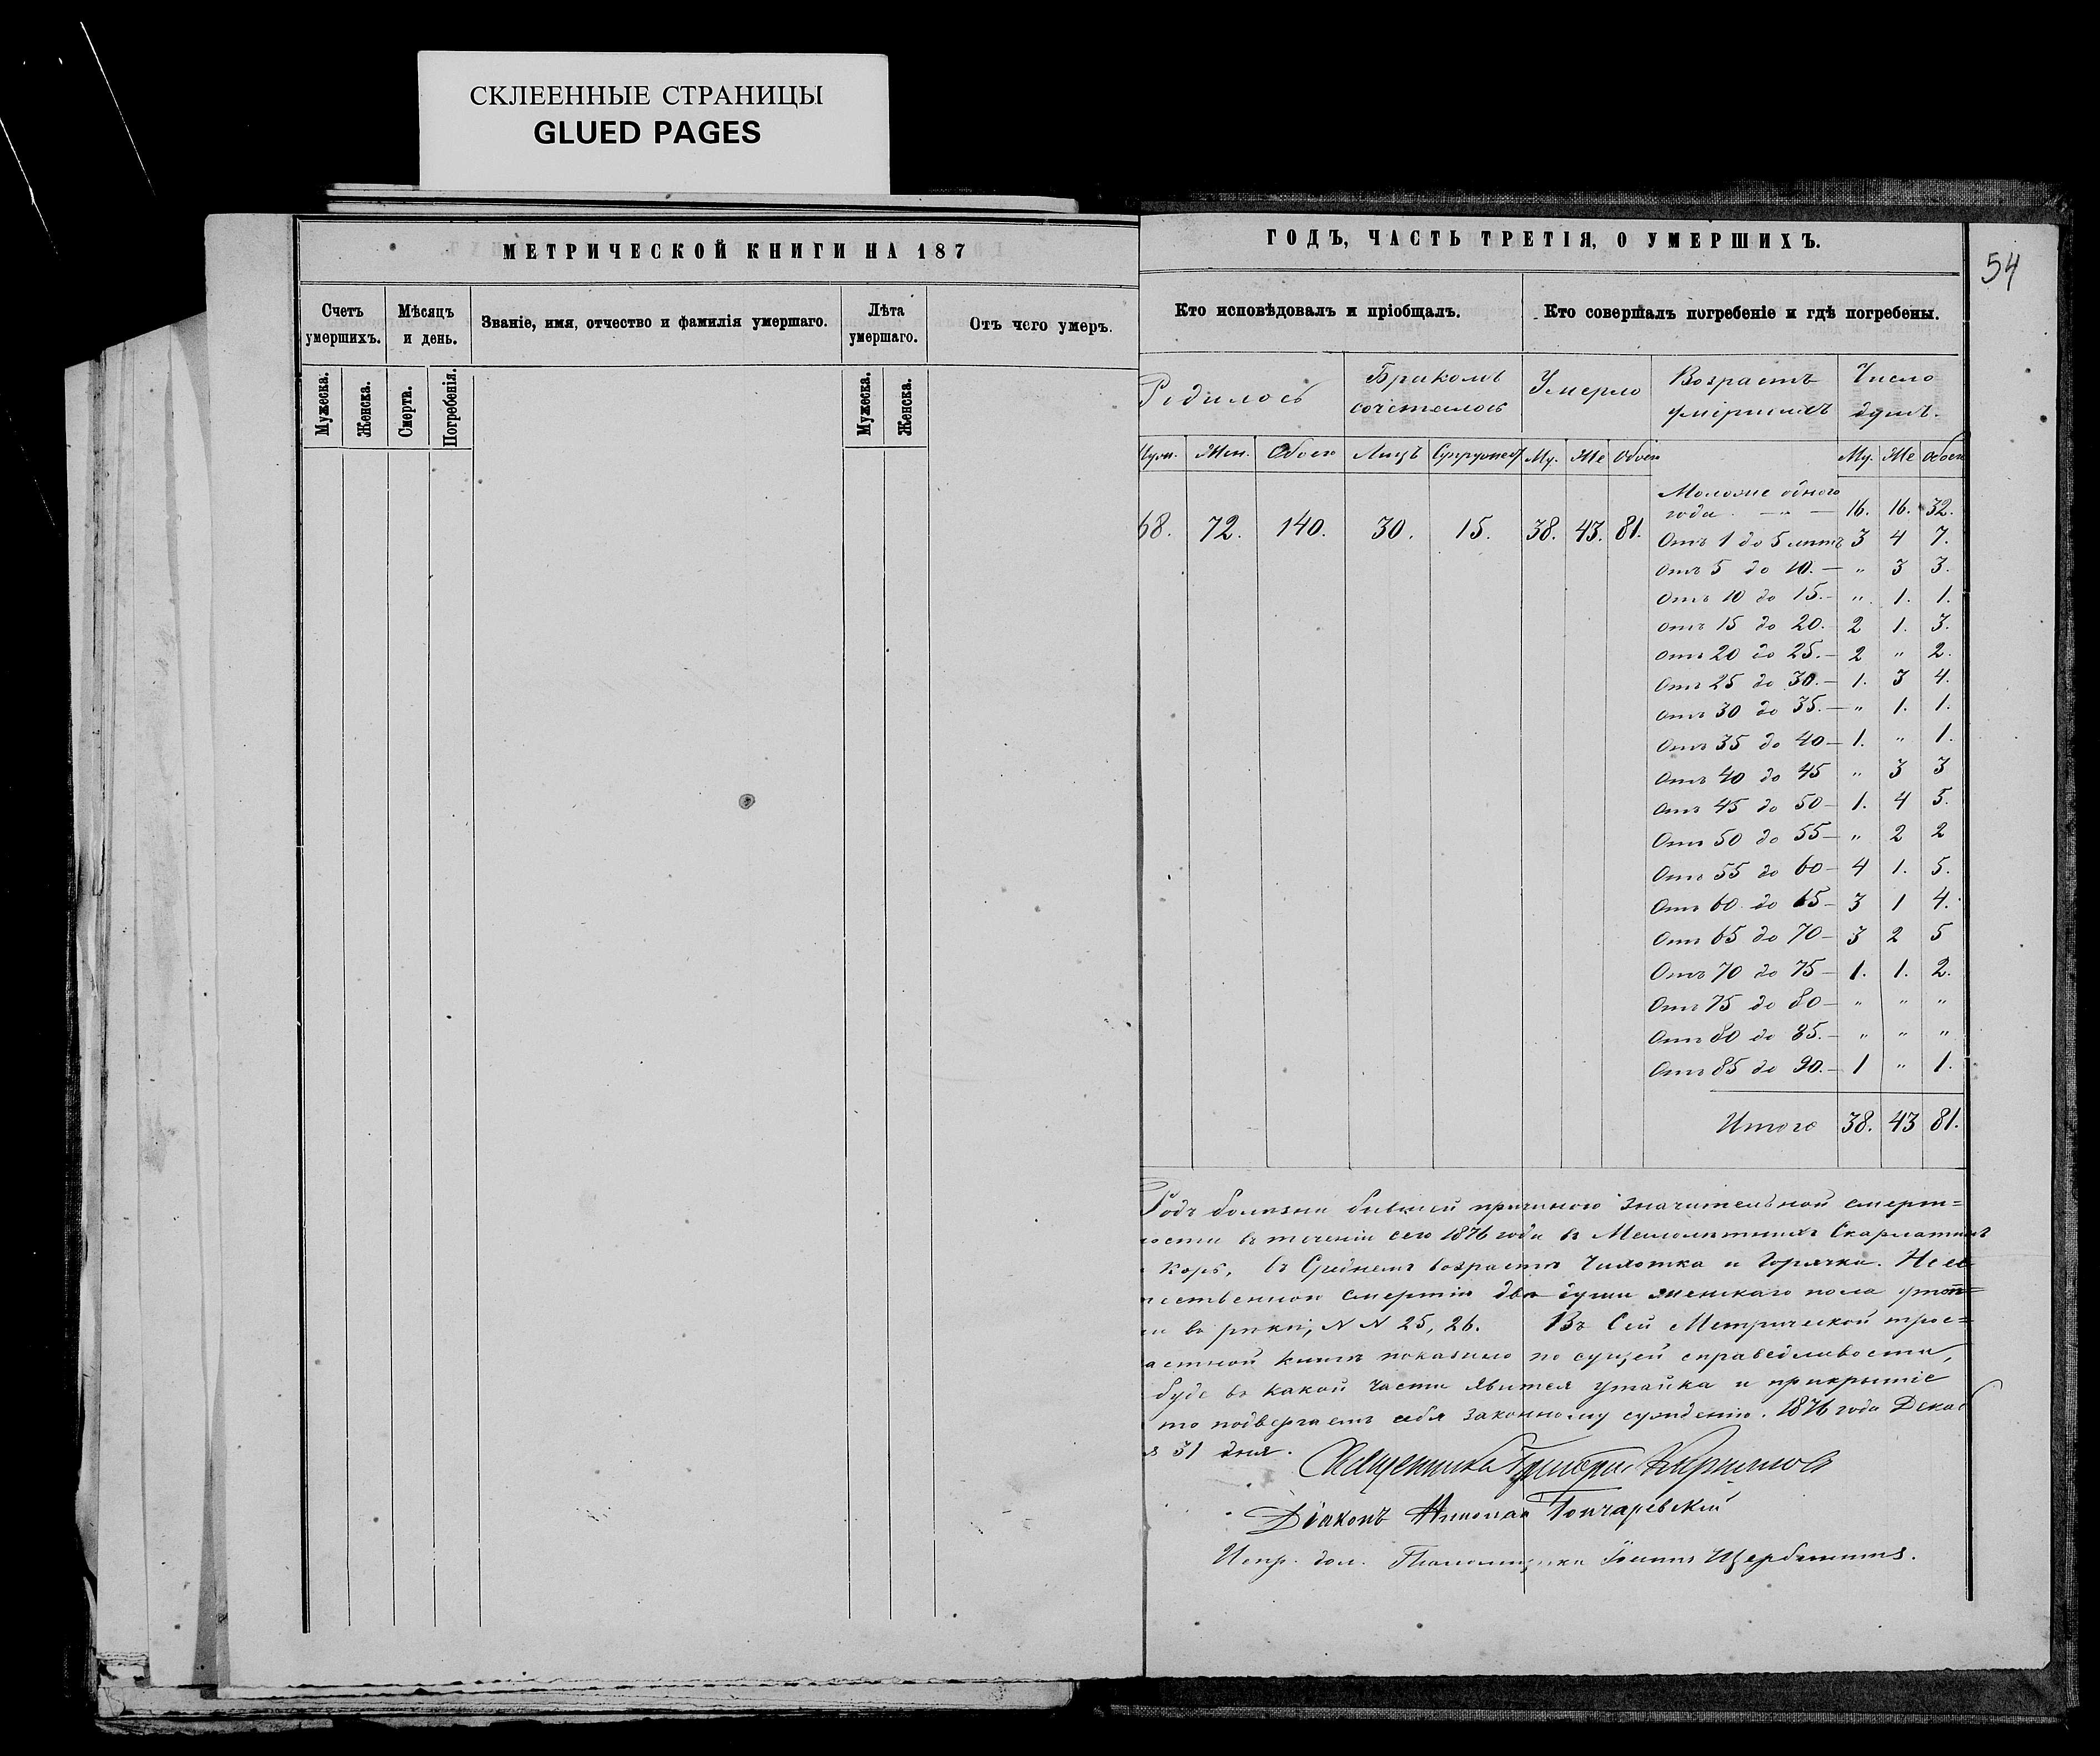 СКЛЕЕННЫЕ СТРАНИЦЫ
GLUED PAGES
МЕТРИЧЕСКОЙ КНИГИ НА 187
Счетъ умершихъ.
Мѣсяцъ и день.
Званіе, имя, отчество и фамилія умершаго.
Лѣта умершаго.
Отъ чего умеръ.
Мужеска.
Женска.
Смерти.
Погребенія.
Мужеска.
Женска.
ГОДЪ, ЧАСТЬ ТРЕТІЯ, О УМЕРШИХЪ.
54
Кто исповѣдовалъ и пріобщалъ.
Кто совершалъ погребеніе и гдѣ погребены.
Родилось
Бракомъ сочеталось
Умерло
Возрастъ умершихъ
Число душъ.
Жен. Обоего Лицъ Супружест Му. Же Обоего Му. Же Обоего
68. 72. 140. 30. 15. 38. 43. 81.
Моложе одного
года — „ — 16. 16. 32.
Отъ 1 до 5 лѣтъ 3 4 7.
Отъ 5 до 10. — „ 3 3.
Отъ 10 до 15. - „ 1. 1.
Отъ 15 до 20. - 2 1. 3.
Отъ 20 до 25. - 2 „ 2.
Отъ 25 до 30. - 1. 3 4.
Отъ 30 до 35. — „ 1. 1.
Отъ 35 до 40 - 1. „ 1.
Отъ 40 до 45 „ 3 3
Отъ 45 до 50 - 1. 4 5.
Отъ 50 до 55 - „ 2 2
Отъ 55 до 60 - 4 1. 5.
Отъ 60 до 65 - 3 1 4.
Отъ 65 до 70 - 3 2 5
Отъ 70 до 75 - 1. 1. 2.
Отъ 75 до 80 - „ „ „
Отъ 80 до 85. - „ „ „
Отъ 85 до 90. - 1 „ 1.
Итого 38. 43 81.
Родъ болѣзни бывшей причиною значительной смерт=
ности въ теченіи сего 1876 года въ Малолѣтнихъ Скарлатина
Корь, въ Среднемъ возрастѣ Чихотка и Горячка. Неес
тественною смертію двѣ души женскаго пола утон=
ли въ рѣкѣ, N N 25, 26. Въ Сей Метрической трое=
частной книгѣ показано по сущей справедливости,
буде въ какой части явится утайка и прикрытіе
то подвергаемъ себя законному сужденію. 1876 года Декаб
я 31 дня.
Священникъ Григорій
Діаконъ Николай Гончаревскій
Испр. дол. Псаломщика Іоаннъ